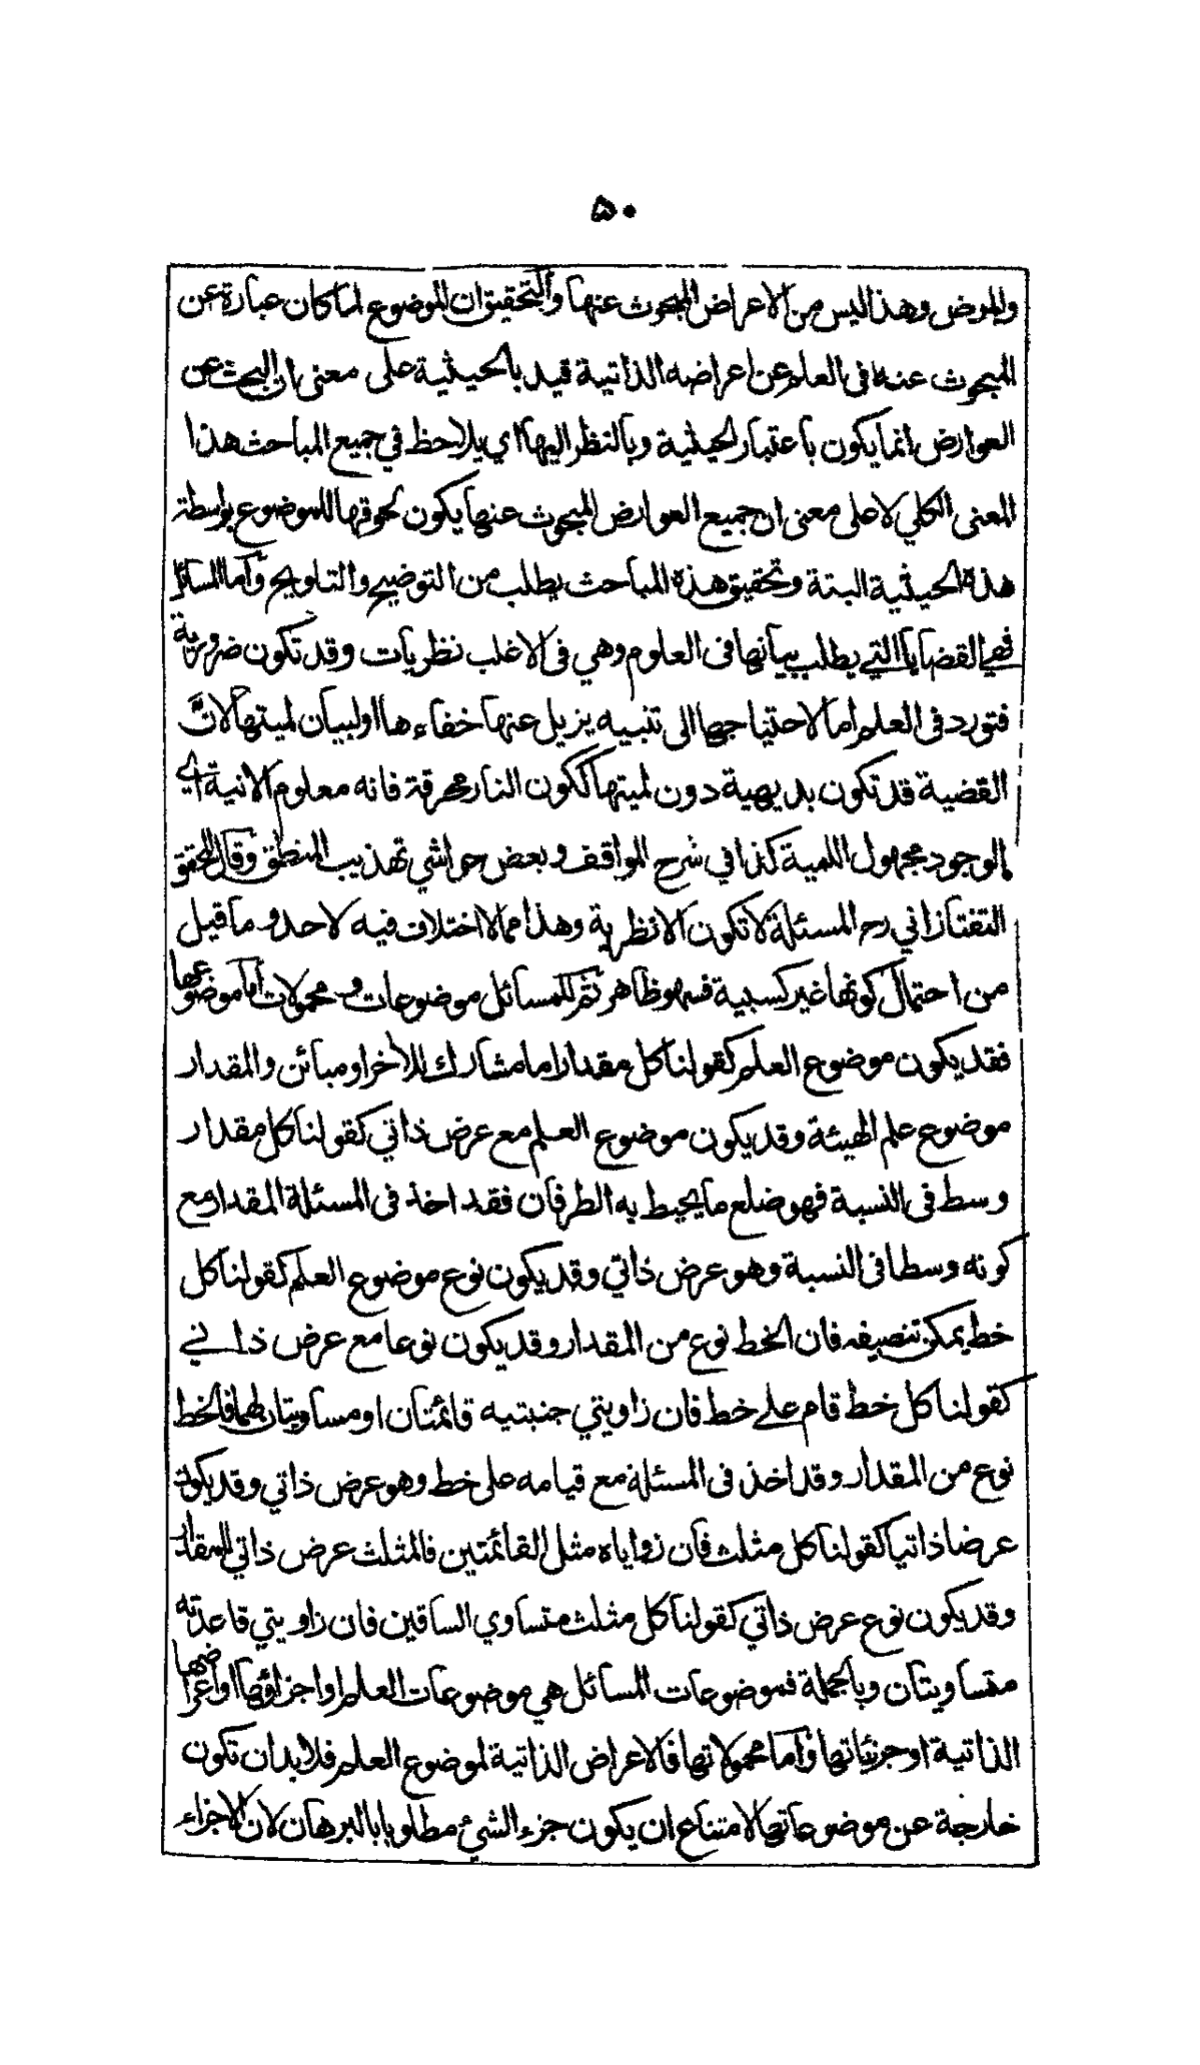 ۵۰
والمرض وهذا ليس من الاعراض المبحوث عنها والتحقيق ان الموضوع لما كان عبارة عن
المبحوث عنه فى العلم عن اعراضه الذاتية قيد بالحيثية على معنى ان البحث عن
العوارض انما يكون باعتبار الحيثية وبالنظر اليها اي يلاحظ في جميع المباحث هذا
المعنى الكلي لا على معنى ان جميع العوارض المبحوث عنها يكون لحوقها للموضوع بواسطة
هذه الحيثية البتة وتحقيق هذه المباحث يطلب من التوضيح والتلويح وأما المسائل
فهي القضايا التي يطلب بيانها فى العلوم وهي فى الاغلب نظريات وقد تكون ضرورية
فتورد فى العلم اما لاحتياجها الى تنبيه يزيل عنها خفاءها او لبيان لميتها لانّ
القضية قد تكون بديهية دون لميتها ككون النار محرقة فانه معلوم الانية اي
الوجود مجهول اللمية كذا في شرح المواقف وبعض حواشي تهذيب المنطق وقال المحقق
التفتازاني رح المسئلة لا تكون الا نظرية وهذا مما لا اختلاف فيه لاحد وما قيل
من احتمال كونها غير كسبية فسهو ظاهر ثم للمسائل موضوعات ومحمولات أما موضوعها
فقد يكون موضوع العلم كقولنا كل مقدار اما مشارك للآخر او مبائن والمقدار
موضوع علم الهيئة وقد يكون موضوع العلم مع عرض ذاتي كقولنا كل مقدار
وسط فى النسبة فهو ضلع ما يحيط به الطرفان فقد اخذ فى المسئلة المقدار مع
كونه وسطا فى النسبة وهو عرض ذاتي وقد يكون نوع موضوع العلم كقولنا كل
خط يمكن تنصيفه فان الخط نوع من المقدار وقد يكون نوعا مع عرض ذاتي
كقولنا كل خط قام على خط فان زاويتي جنبتيه قائمتان او مساويتان لهما فالخط
نوع من المقدار وقد اخذ فى المسئلة مع قيامه على خط وهو عرض ذاتي وقد يكون
عرضا ذاتيا كقولنا كل مثلث فان زواياه مثل القائمتين فالمثلث عرض ذاتي للمقدار
وقد يكون نوع عرض ذاتي كقولنا كل مثلث متساوي الساقين فان زاويتي قاعدته
متساويتان وبالجملة فموضوعات المسائل هي موضوعات العلم او اجزاؤها او اعراضها
الذاتية او جزئياتها وأما محمولاتها فالاعراض الذاتية لموضوع العلم فلابد ان تكون
خارجة عن موضوعاتها لامتناع ان يكون جزء الشيئ مطلوبا بالبرهان لان الاجزاء